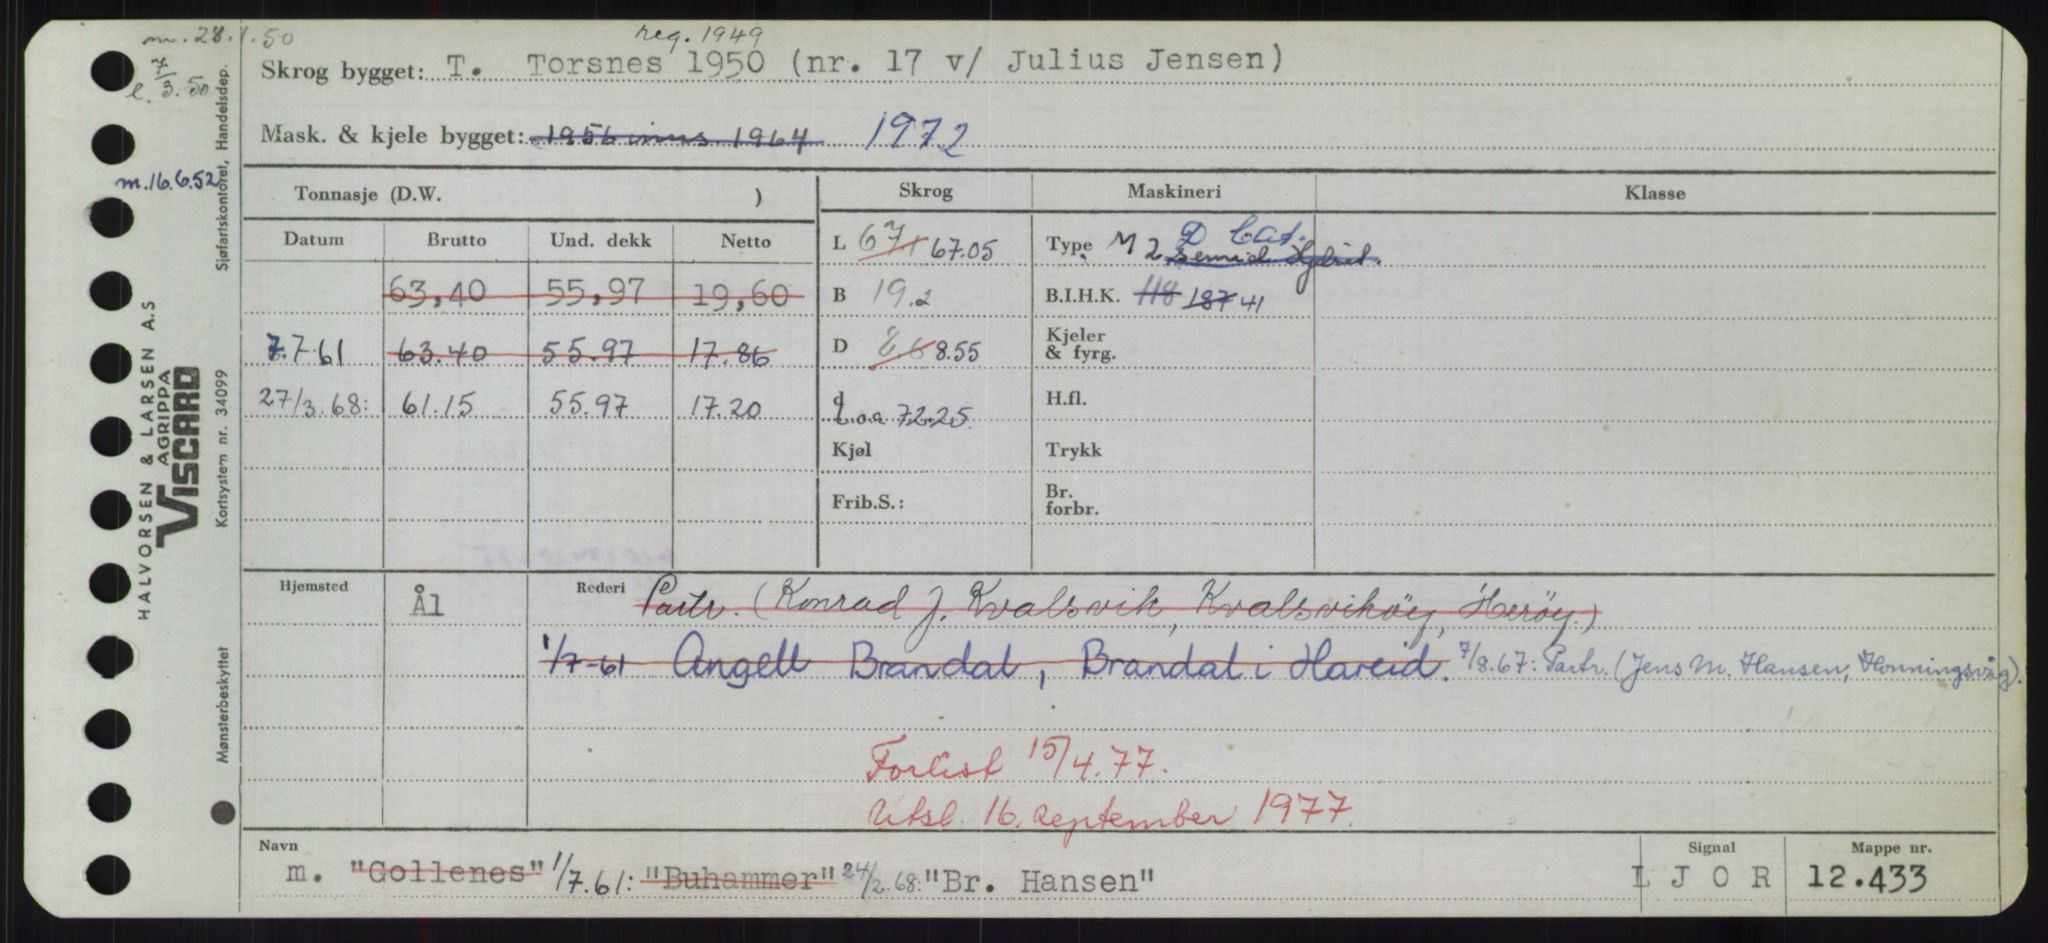 m. 28.1.50
reg. 1949
Skrog bygget: T. Torsnes 1950 (nr. 17 v/ Julius Jensen)
l. 7/3.50
Mask. & kjele bygget: 1956 inns. 1964 1972
m.16.6.52
Tonnasje (D.W. ) Skrog Maskineri Klasse
Datum Brutto Und. dekk Netto
L 67,1 67.05 Type M 2 semid Hydrat. D Cat.
63,40 55,97 19,60 B 19.2 B.I.H.K. 118 187 41
7.7 61 63.40 55.97 17.86 D 8.6 8.55 Kjeler & fyrg.
27/3.68: 61.15 55.97 17.20 d L.o.a 72.25 H.fl.
Kjøl Trykk
Frib.S.: Br. forbr.
Hjemsted Ål Rederi Partr. (Konrad J. Kvalsvik, Kvalsviköy, Heröy.)
1/7-61 Angell Brandal, Brandal i Hareid. 7/8.67: Partr. (Jens M. Hansen, Honningsvåg).
Forlist 15/4.77.
Utsl. 16. september 1977.
Navn Signal Mappe nr.
m. "Gollenes" 1/7.61: "Buhammer" 24/2.68: "Br. Hansen" L J O R 12.433
HALVORSEN & LARSEN A.S
AGRIPPA
VISCARD
Sjøfartskontoret, Handelsdep.
Kortsystem nr. 34099
Mønsterbeskyttet